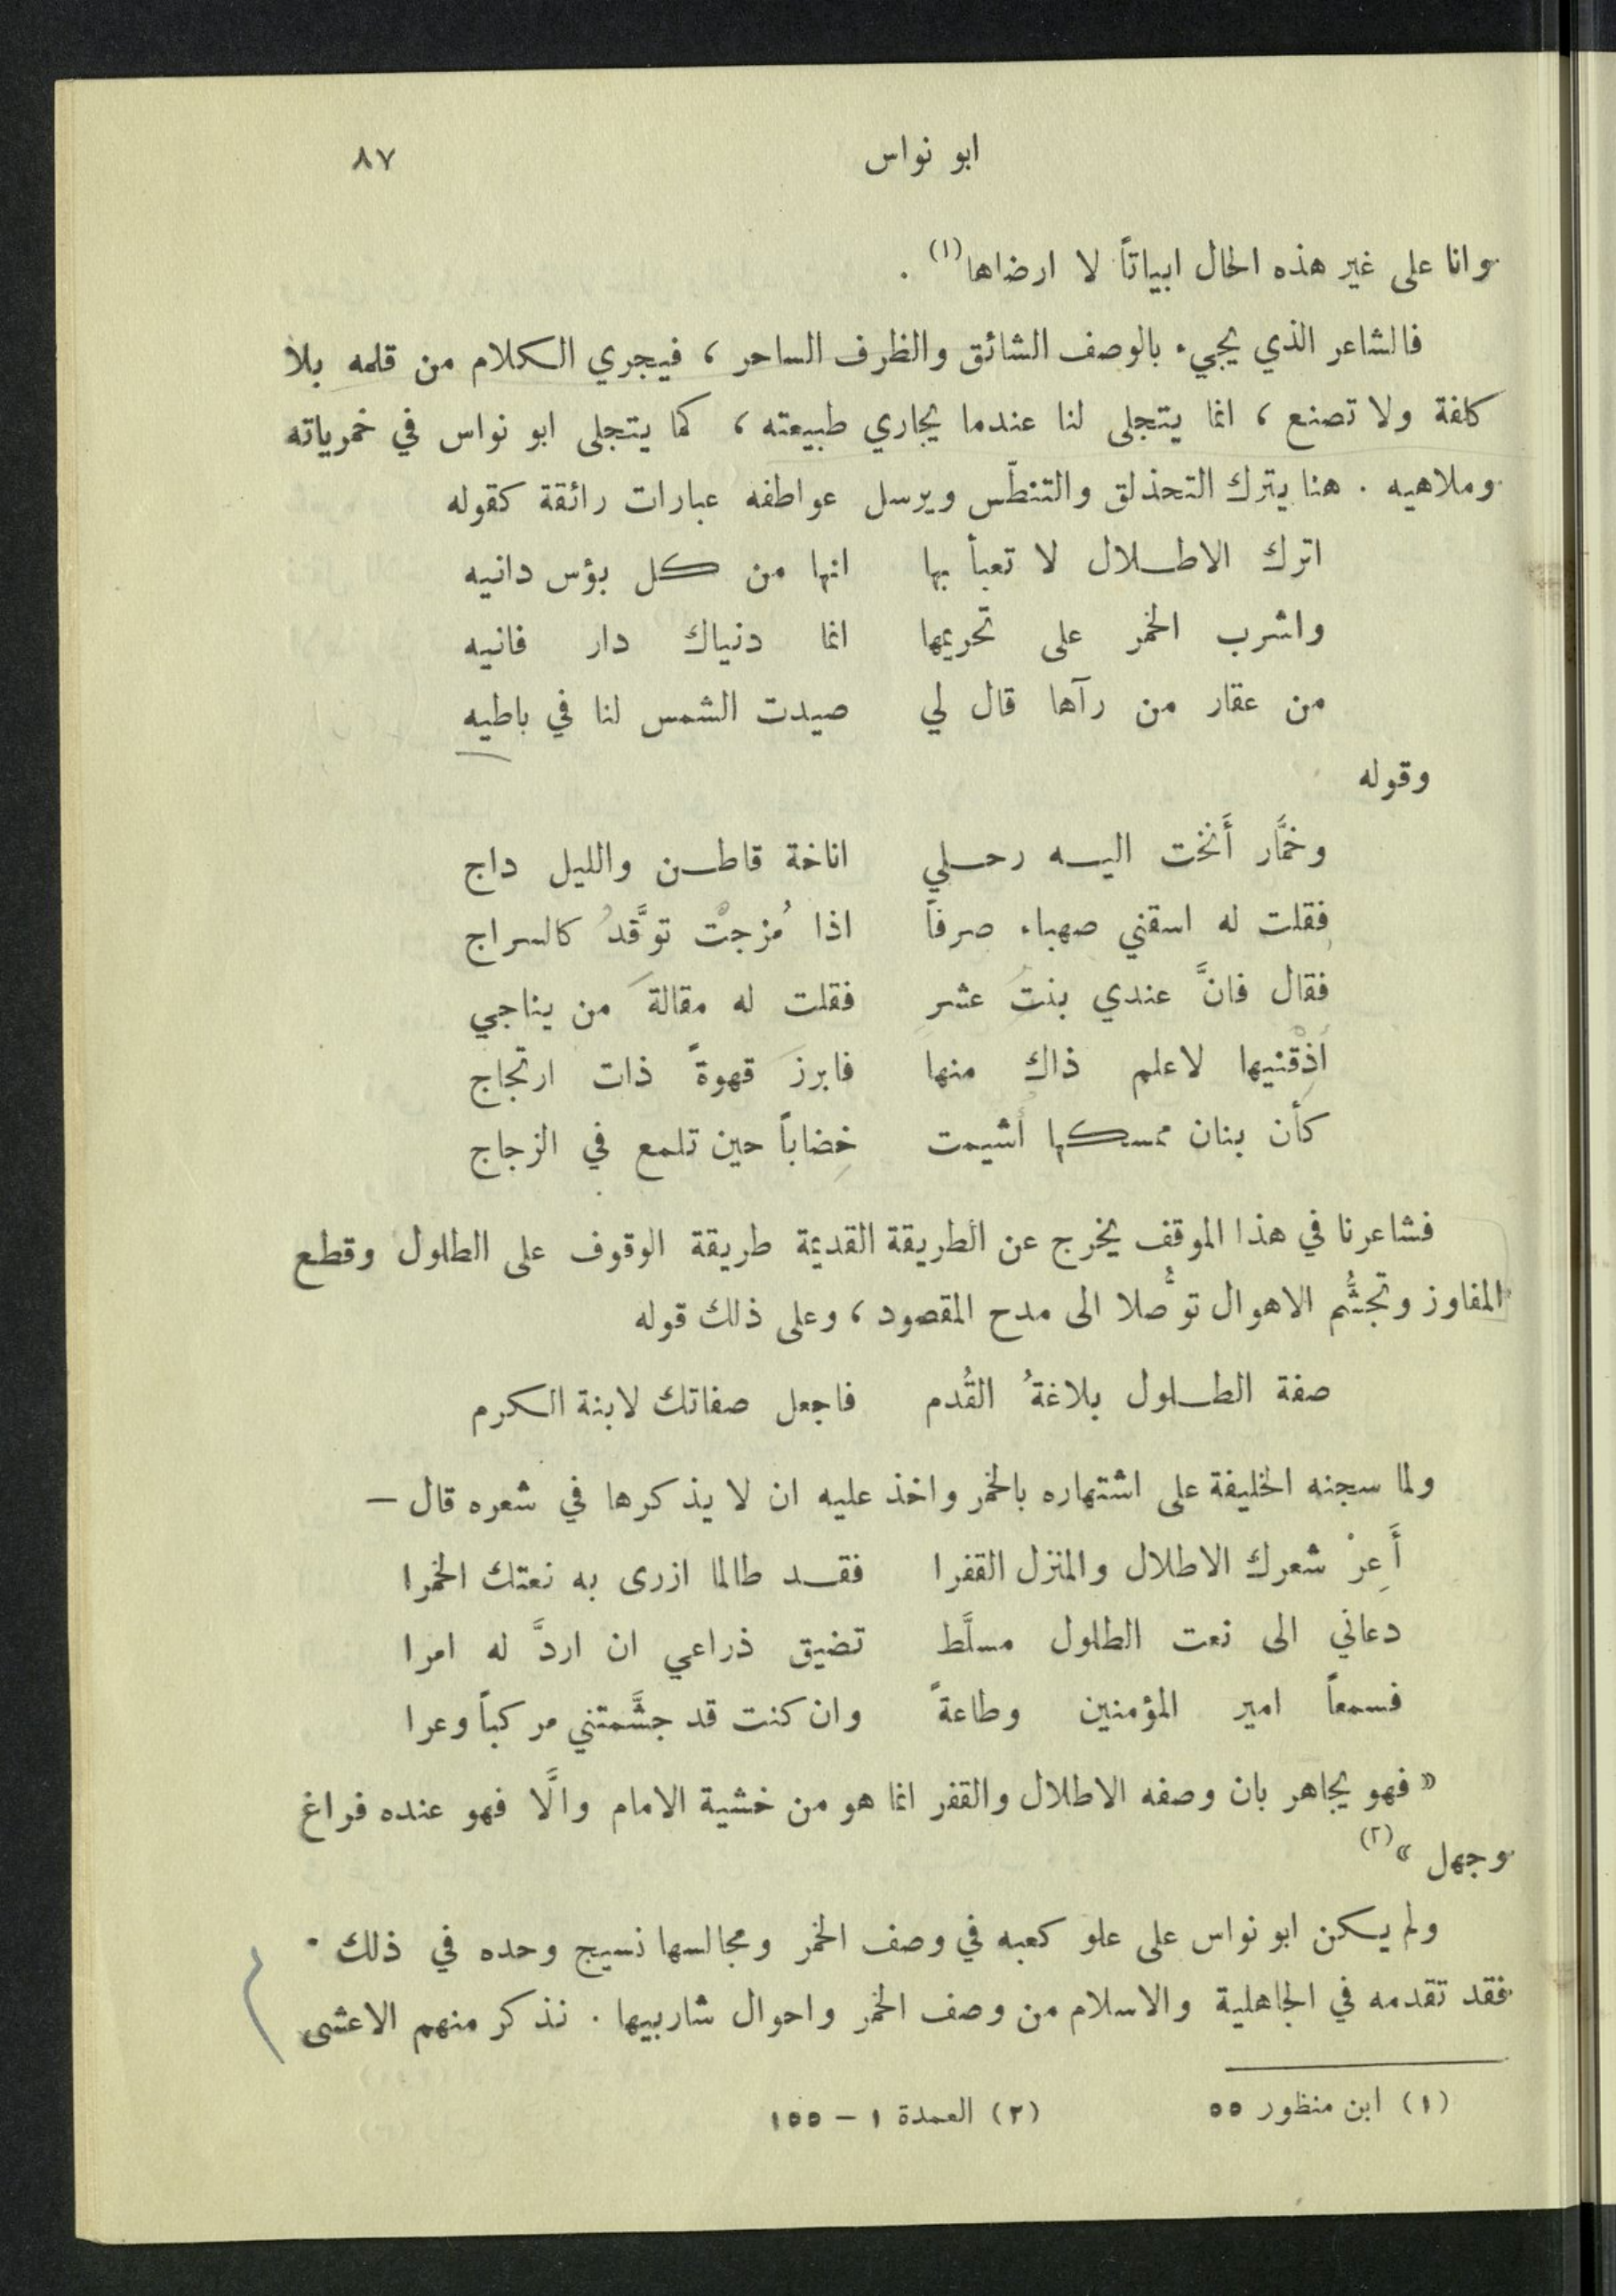 ابو نواس ٨٧
وانا على غير هذه الحال ابياتاً لا ارضاها (١) .
فالشاعر الذي يجيء بالوصف الشائق والظرف الساحر ، فيجري الكلام من قلمه بلا
كلفة ولا تصنع ، انما يتجلى لنا عندما يجاري طبيعته ، كما يتجلى ابو نواس في خمرياته
وملاهيه . هنا يترك التحذلق والتنطّس ويرسل عواطفه عبارات رائقة كقوله
اترك الاطلال لا تعبأ بها انها من كل بؤس دانيه
واشرب الخمر على تحريمها انما دنياك دار فانيه
من عقار من رآها قال لي صيدت الشمس لنا في باطيه
وقوله
وخمَّار أَنخت اليه رحلي اناخة قاطن والليل داج
فقلت له اسقني صهباء صرفاً اذا مُزجتْ توَّقدُ كالسراج
فقال فانَّ عندي بنتَ عشرِ فقلت له مقالةَ من يناجي
أَذِقْنيها لاعلم ذاك منها فابرزَ قهوةً ذات ارتجاج
كأن بنان ممسكها أُشيمت خِضاباً حين تلمع في الزجاج
فشاعرنا في هذا الموقف يخرج عن الطريقة القديمة طريقة الوقوف على الطلول وقطع
المفاوز وتجشُّم الاهوال توُّصلا الى مدح المقصود ، وعلى ذلك قوله
صفة الطلول بلاغةُ القُدم فاجعل صفاتك لابنة الكرم
ولما سجنه الخليفة على اشتهاره بالخمر واخذ عليه ان لا يذكرها في شعره قال —
أَعِرْ شعرك الاطلال والمنزل القفرا فقد طالما ازرى به نعتك الخمرا
دعاني الى نعت الطلول مسلَّط تضيق ذراعي ان اردَّ له امرا
فسمعاً امير المؤمنين وطاعةً وان كنت قد جشَّمتني مركباً وعرا
« فهو يجاهر بان وصفه الاطلال والقفر انما هو من خشية الامام والَّا فهو عنده فراغ
وجهل » (٢)
ولم يكن ابو نواس على علو كعبه في وصف الخمر ومجالسها نسيج وحده في ذلك .
فقد تقدمه في الجاهلية والاسلام من وصف الخمر واحوال شاربيها . نذكر منهم الاعشى
(١) ابن منظور ٥٥ (٢) العمدة ١ – ١٥٥